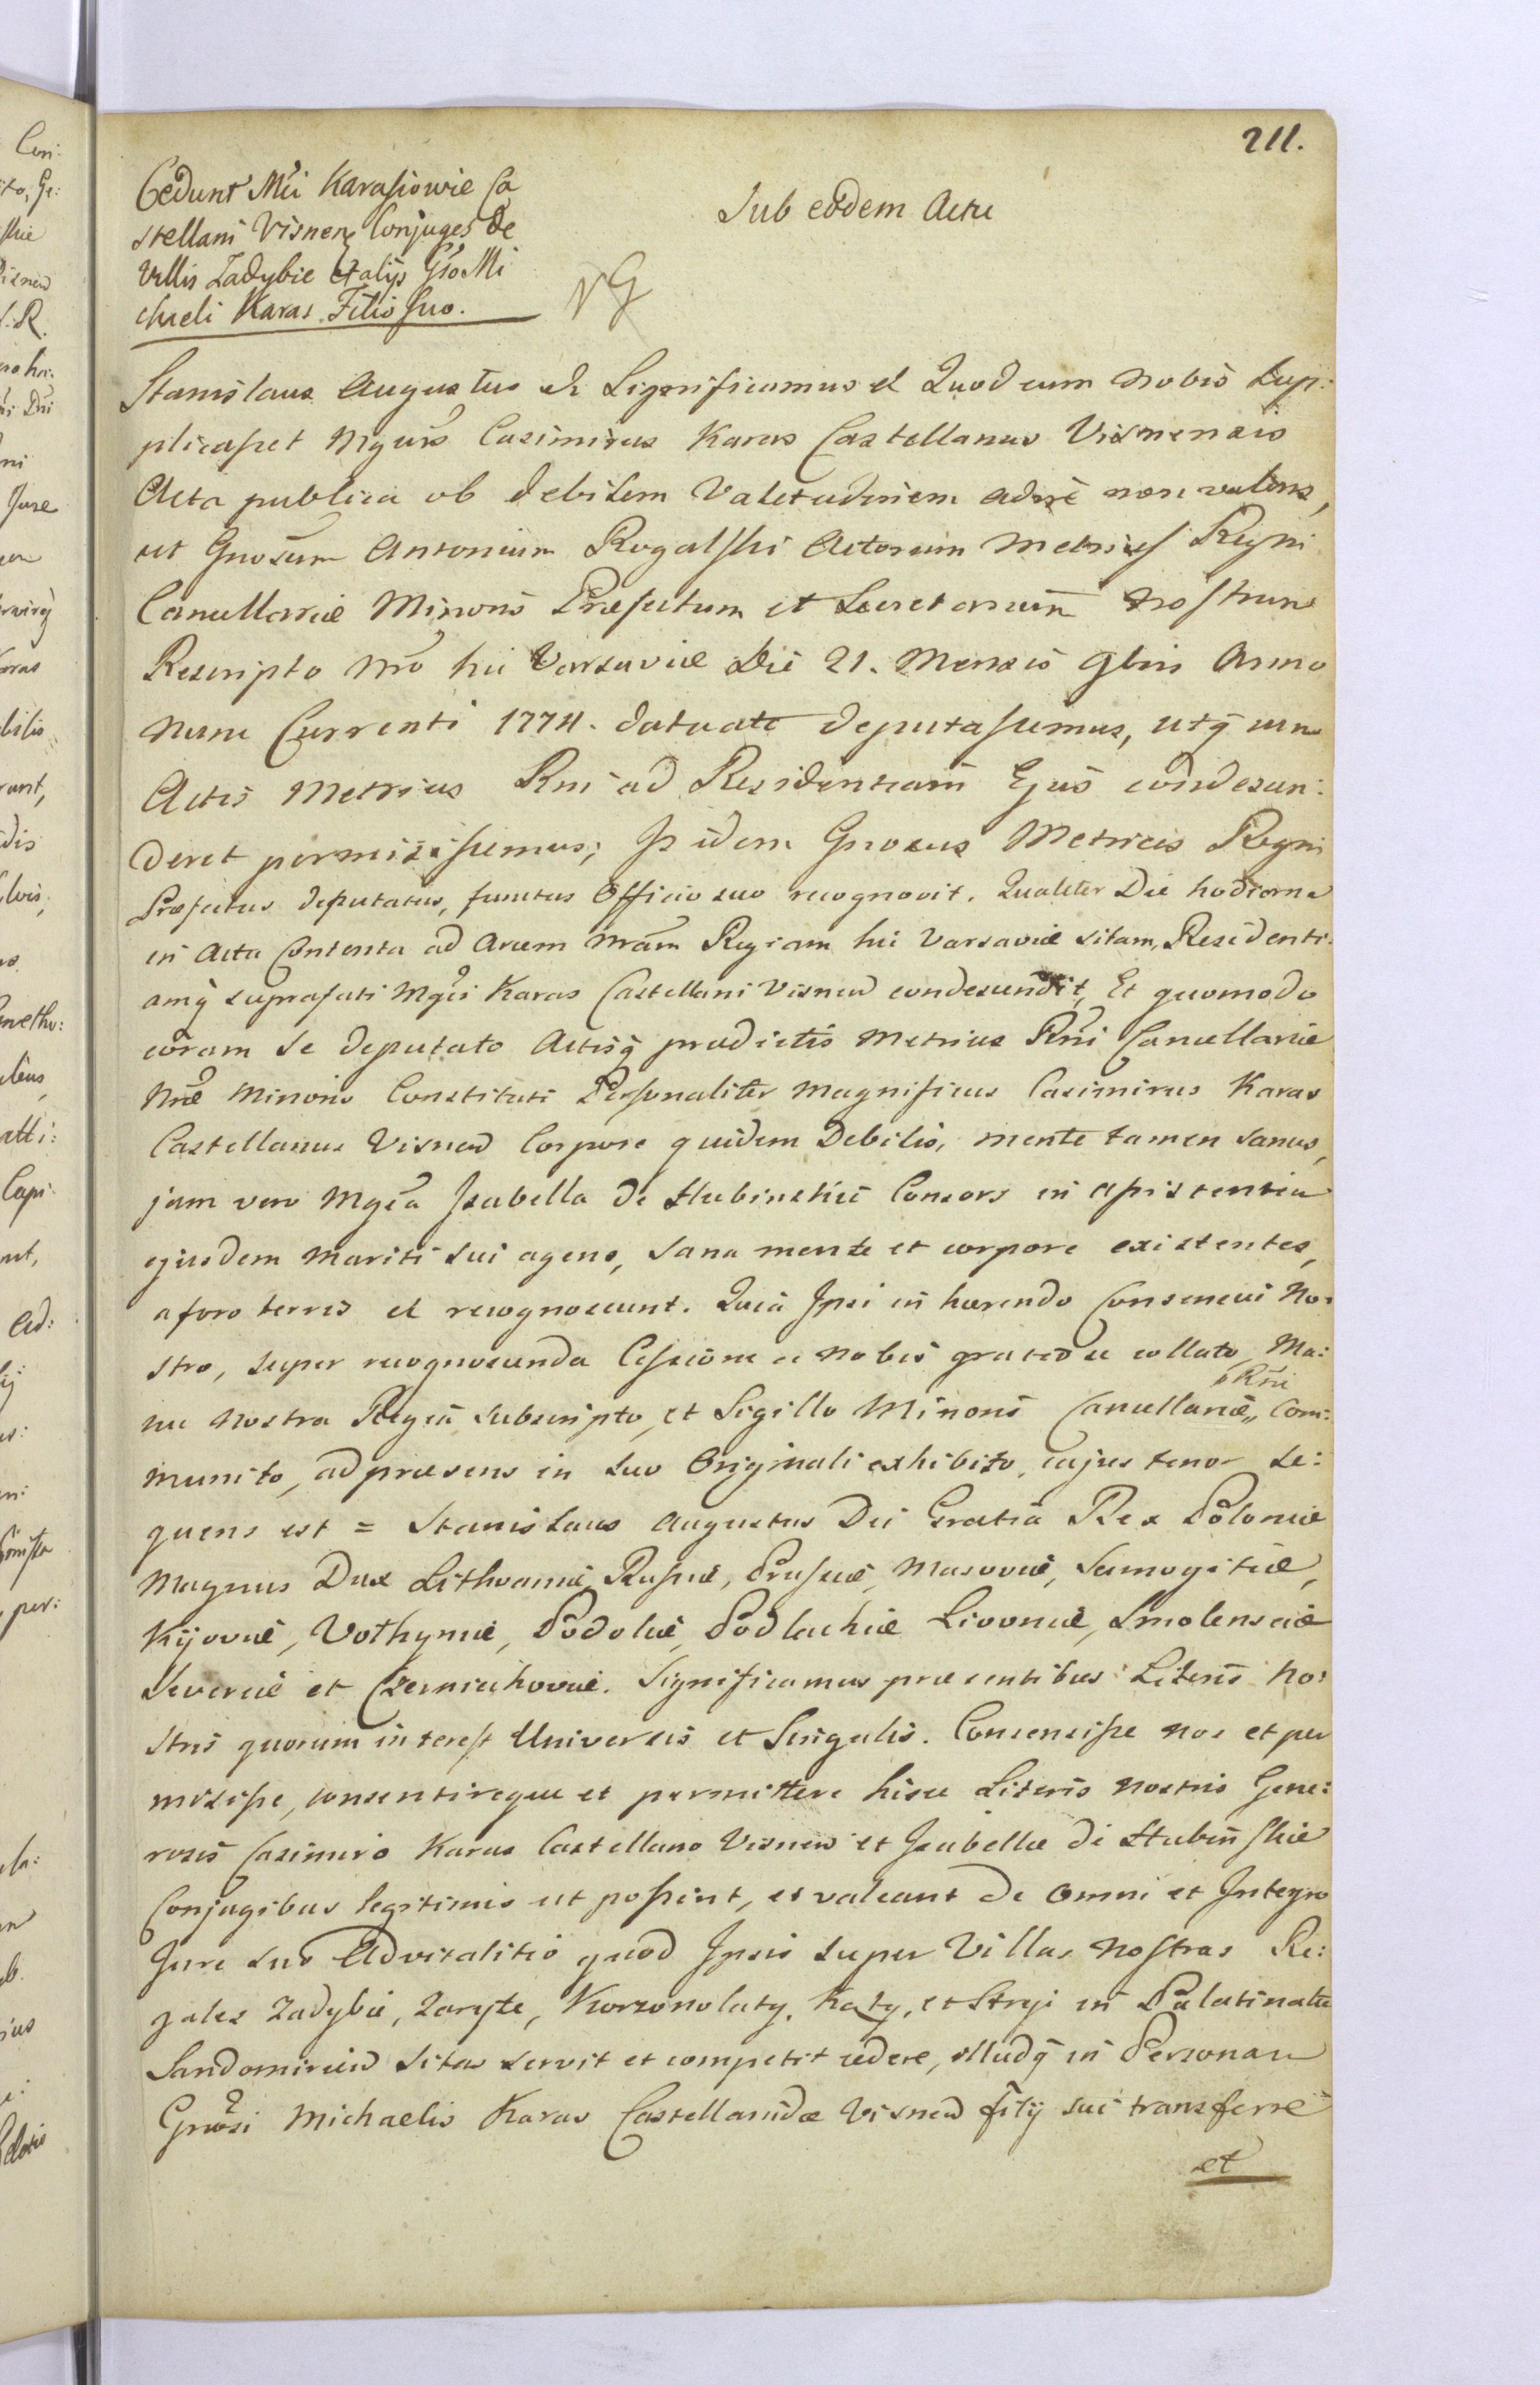 211.
Cedunt Mci Karasiowie Ca
stellani Visnen Conjuges de
Villis Zadybie et alijs Gso Mi
chaeli Karas Filio Suo.
Sub eodem Actu
Stanislaus Augustus &c Significamus &c Quod cum Nobis Sup:
plicasset Mgcus Casimirus Karas Castellanus Visnensis
Acta publica ob debilem Valetudinem adire non valens,
ut Gnosum Antonium Rogalski Actorum Metrices Regni
Cancellariae Minoris Praefectum et Secretarium Nostrum
Rescripto Nro hic Varsaviae Die 21. Mensis 9bris Anno
nunc Currenti 1774. dato ad id deputassemus, utq cum
Actis Metrices Rni ad Residentiam Ejus condescen:
deret permisissemus; Is idem Gnosus Metrices Regni
Praefectus deputatus, functus Officio suo recognovit. Qualiter Die hodierna
in Actu Contenta ad Arcem Nram Regiam hic Varsaviae sitam, Residenti:
amq suprafati Mgci Karas Castellani Visnen condescendit, Et quomodo
coram se deputato Actisq praedictis Metrices Rni Cancellariae
Nrae Minoris Constituti Personaliter Magnificus Casimirus Karas
Castellanus Visnen Corpore quidem Debilis, mente tamen sanus,
jam vero Mgca Isabella de Hubinskie Consors in assistentia
ejusdem Mariti sui agens, sana mente et corpore existentes,
a foro terris &c recognoscunt. Quia Ipsi in haerendo Consensui No:
stro, super recognoscenda Cessione a nobis gratiose collato, Ma:
nu Nostra Regia subscripto, et Sigillo Minoris Cancellariae „Rni Com:
munito, ad praesens in suo Originali exhibito, cujus tenor se:
quens est = Stanislaus Augustus Dei Gratia Rex Poloniae
Magnus Dux Lithvaniae, Russiae, Prussiae, Masoviae, Samogitiae,
Kijoviae, Volhyniae, Podoliae, Podlachiae Livoniae, Smolensciae
Severiae et Czerniechoviae. Significamus praesentibus Literis No:
stris quorum interest Universis et Singulis. Consensisse nos et per
misisse, consentireque et permittere hisce Literis Nostris Gene:
rosis Casimiro Karas Castellano Visnen et Isabellae de Hubinskie
Conjugibus legitimis ut possint, et valeant de omni et Integro
Jure suo Advitalitio quod Ipsis super Villas Nostras Re:
gales Zadybie, Zaryte, Korzonolaty, Katy, et Stryi in Palatinatu
Sandomirien sitas servit et competit cedere, illudq in Personam
Gnosi Michaelis Karas Castellanidae Visnen filij sui transferre
et